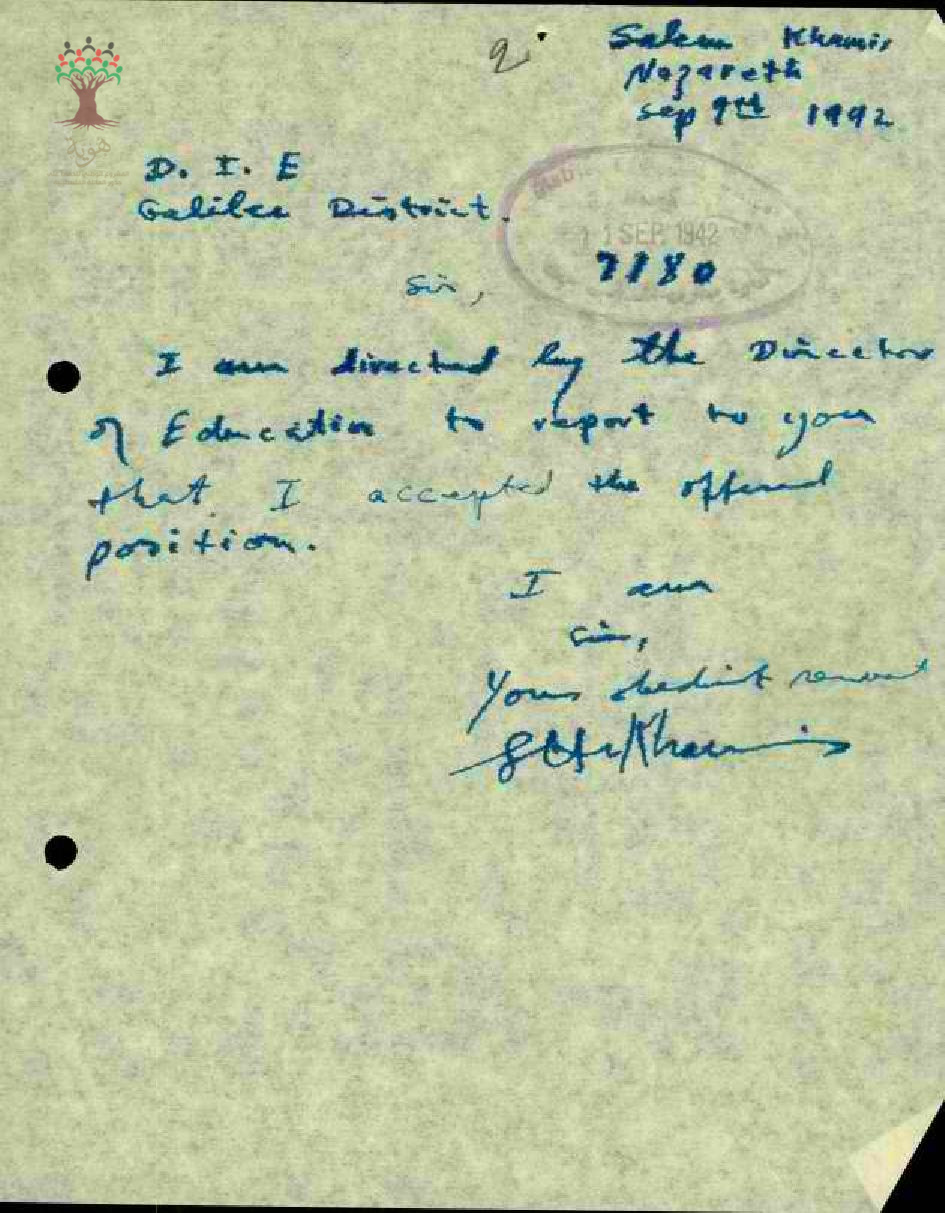 2
Salem Khamis
Nazareth
Sep 9th 1992
هوية
D. I. E
Galilee District.
11 SEP. 1942
7180
Sir,
I am directed by the Director
of Education to report to you
that I accepted the offered
position.
I am
Sir,
Yours obedint servant
Khamis